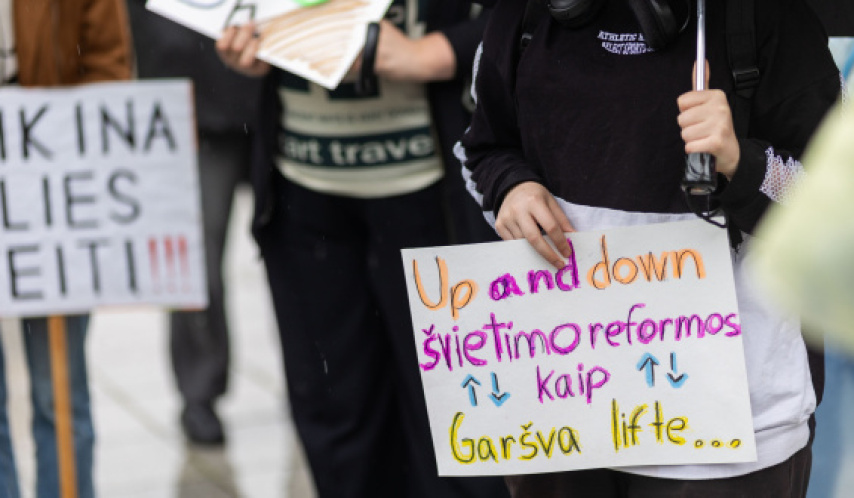 IK INA
LIES
EITI!!!!
art travel
ATHLETIC
SELECT SPORTS
Up and down
švietimo reformos
↑↓ kaip ↑↓
Garšva lifte...